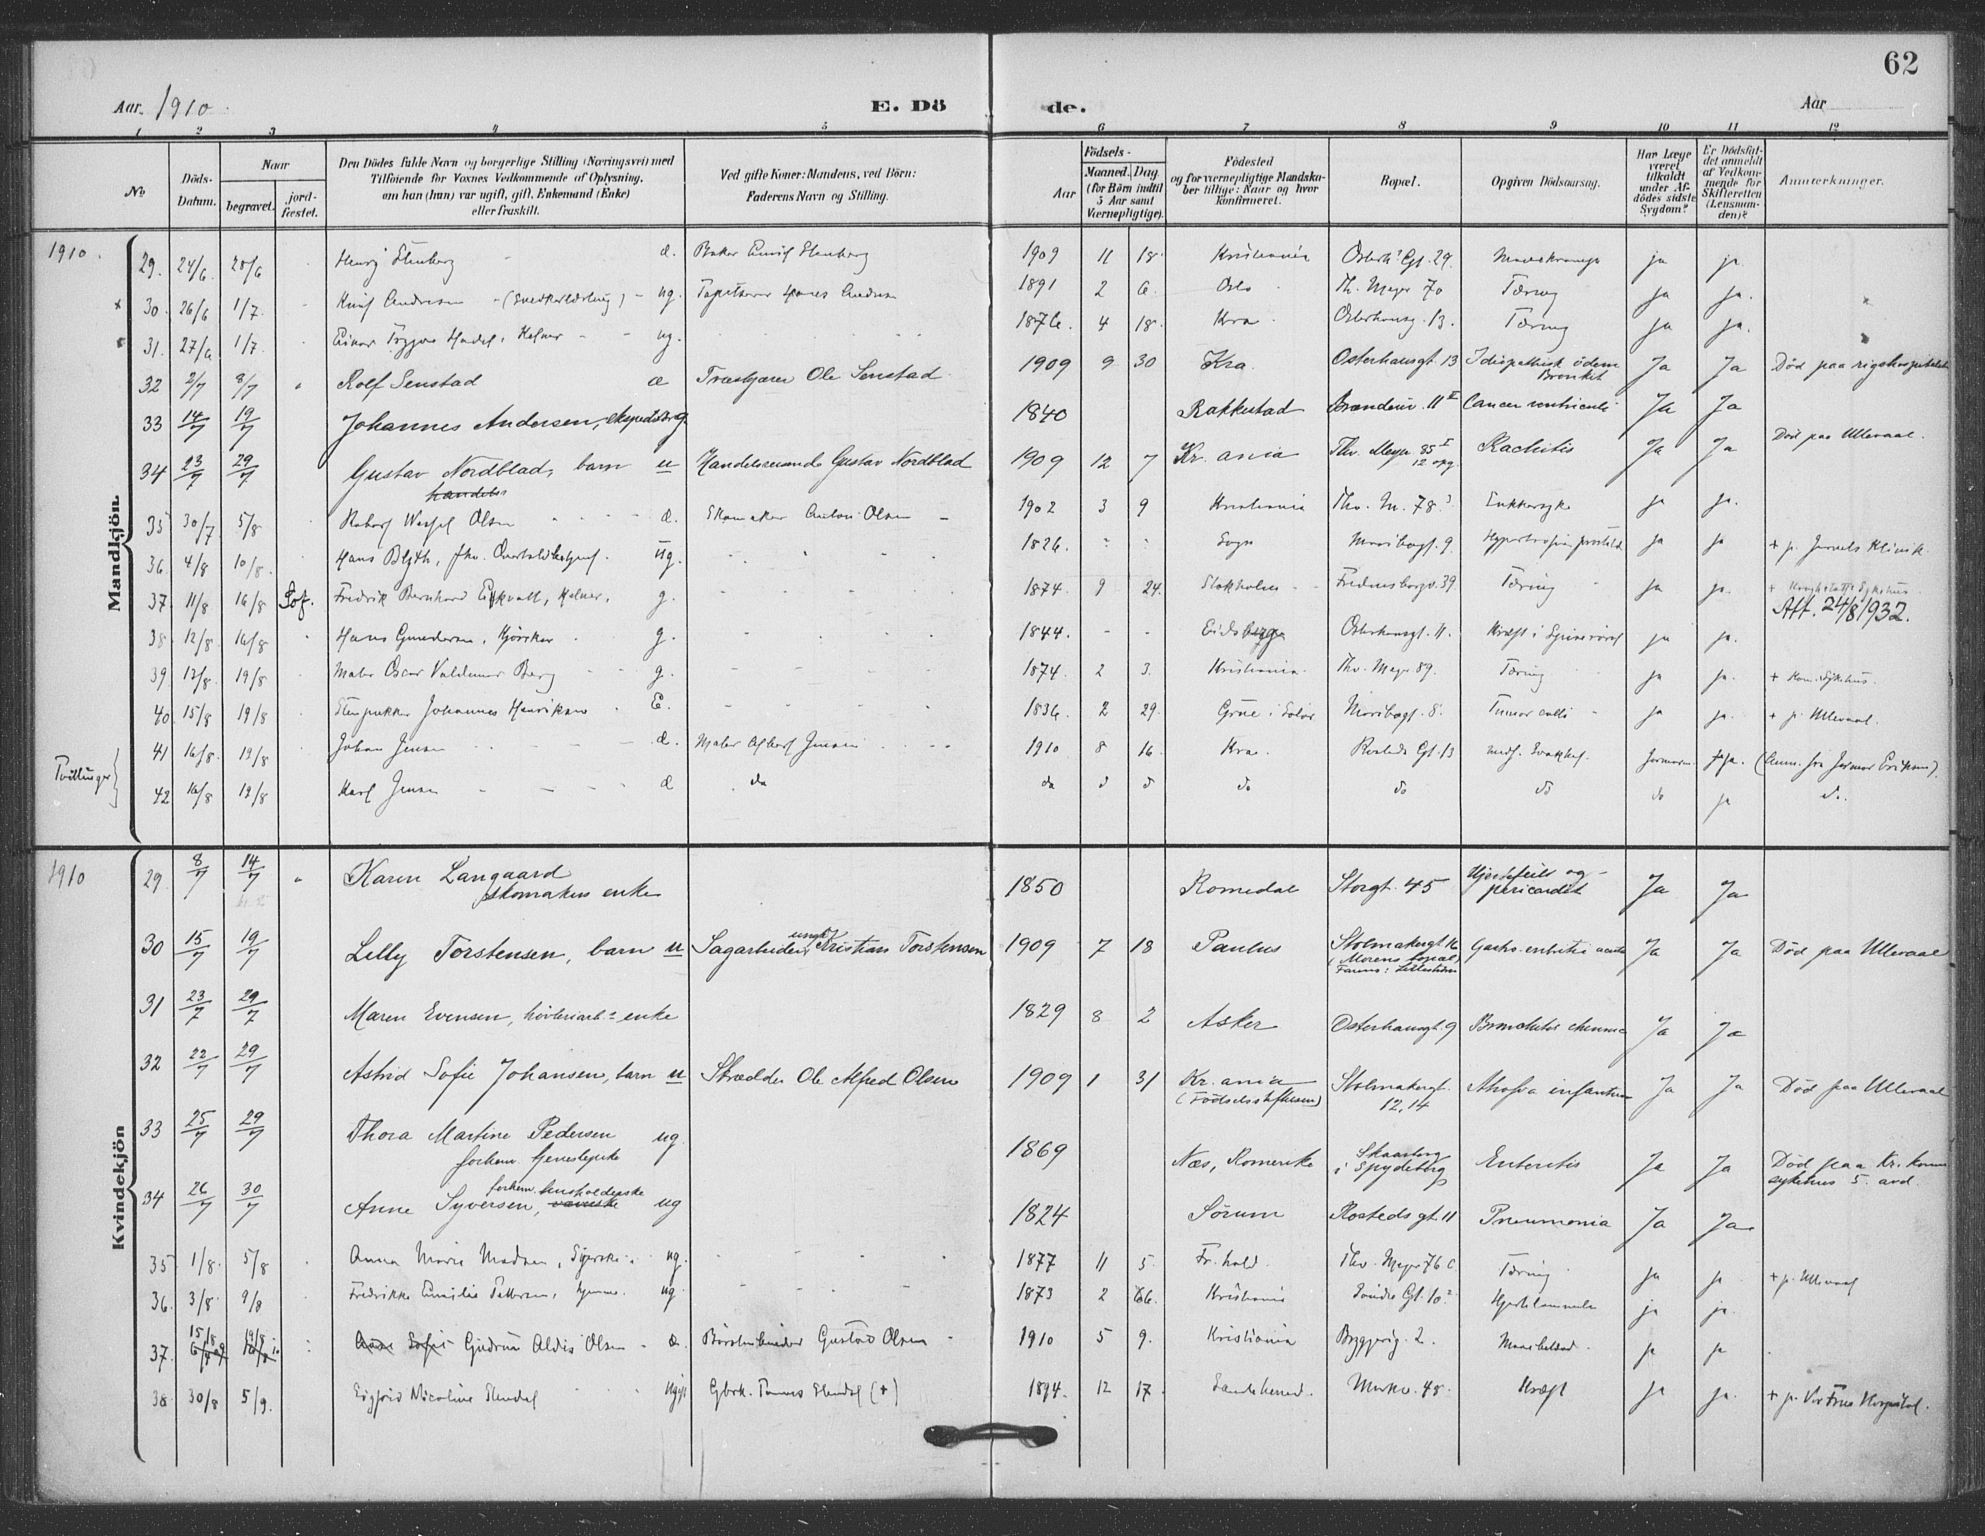 62
Aar 1910.
E. Dö
de.
Aar
1 2 3 4 5 6 7 8 9 10 11 12
No
Döds-
Datum.
Naar
begravet.
jord-
fæstet.
Den Dödes fulde Navn og borgerlige Stilling (Næringsvei) med
Tilföiende for Voxnes Vedkommende af Oplysning,
om han (hun) var ugift, gift, Enkemand (Enke)
eller fraskilt.
Ved gifte Koner: Mandens, ved Börn:
Faderens Navn og Stilling.
Aar
Födsels-
Maaned. Dag.
(for Börn indtil
5 Aar samt
Værnepligtige).
Födested
og for værnepligtige Mandska-
ber tillige: Naar og hvor
konfirmeret.
Bopæl.
Opgiven Dödsaarsag.
Har Læge
været
tilkaldt
under Af-
dödes sidste
Sygdom?
Er Dödsfal-
det anmeldt
af Vedkom-
mende for
Skifteretten
(Lensman-
den)?
Anmerkninger.
Mandkjön
1910. 29. 24/6 28/6 Henry Stenberg d. 1909 11 18. Kristiania Osterh. Gt. 29. ja ja.
30. 26/6 1/7. Andersen ug. Tapetserer Hans Andersen 1891 2 6. Oslo Th. Meyer 70 Tæring ja ja.
31. 27/6 1/7. Einar Trygve Kelner ug. 1876. 4 18. Kra Osterhausg. 13. Tæring ja ja.
32 2/7 8/7 Rolf Senstad æ Træskjærer Ole Senstad 1909 9 30 Kra. Osterhausgt. 13 Idiopathisk ödem Bronkit Ja Ja Död paa rigshospitalet
33 14/7 19/7 Johannes Andersen, g 1840 Rakkestad 11 II Cancer ventriculi Ja Ja
34 23/7 29/7 Gustav Nordblad, barn u Handelsreisende Gustav Nordblad 1909 12 7 Kr.ania Thv. Meyer 85 I 12 opg. Rachitis Ja Ja Död paa Ullevaal.
35 30/7 5/8 Olsen d. Skomaker Anton Olsen 1902 3 9 Kristiania Thv. M. 78 3 Sukkersyke ja ja.
36. 4/8 10/8. Hans Blyth, ug. 1826. Sogn Maribogt. 9. ja ja + p. Klinik
37. 11/8 16/8 Sof. Fredrik Bernhard Ekvall, Kelner. g. 1874 9 24. Stokholm Fredensborgv. 39 Tæring ja ja. + Sykehus.
Att. 24/8 1932.
38. 12/8 16/8 Hans Gundersen, Kjörsker g. 1844. Osterhausgt. 11. Kræft i Spiserøret ja ja.
39. 12/8. 19/8 Maler Oscar Valdemar Berg g. 1874. 2 3. Kristiania Thv. Meyer 89. Tæring ja ja. + Kom. Sykehus.
40. 15/8 19/8 Johannes Henriksen E. 1836. 2 29. Grue i Solör Maribogt. 8. Tumor colli ja ja. + p. Ullevaal.
Tvillinger
41 16/8. 19/8 Johan Jensen d. Maler Jensen 1910 8 16. Kra. Rosteds Gt. 13 Jormoren ja. (Anm. fra Jormor Eriksen).
42 16/8 19/8 Karl Jensen d do do d d do do do do ja do.
Kvindekjön
1910 29. 8/7 14/7 Karen Langaard skomakers enke 1850 Romedal Storgt. 45 Hjertefeil og pericardit Ja Ja
30 15/7 19/7 Lilly Torstensen, barn u Sagarbeider, ungk. Kristian Torstensen 1909 7 18 Paulus Stolmakergt 16 (Morens bopæl) Farens: Lilleström Gastro-enteritis acuta Ja Ja Död paa Ullevaal
31 23/7 29/7 Maren Evensen, høvleriarb.s enke 1829 8 2 Asker Osterhausgt. 9 Ja Ja
32 22/7 29/7 Astrid Sofie Johansen, barn u Skrædder Ole Alfred Olsen 1909 1 31 Kr.ania (Födselsstiftelsen) Stolmakergt. 12, 14 Atrofia infantum Ja Ja Död paa Ullevaal
33 25/7 29/7 Thora Martine Pedersen forhen. tjenestepike ug. 1869 Næs, Romerike Skaarborg i Spydeberg Enteritis Ja Ja Död paa Kr. komm. sykehus 5. avd.
34 26/7 30/7 Anne Syversen, forhen. husholderske ug 1824 Sörum Rosteds gt. 11 Pneumonia Ja Ja
35 1/8. 5/8 Anna Marie Madsen, Syerske. ug. 1877 11 5. Fr.hald. Thv. Meyer 76 c Tæring ja ja + p. Ullevaal
36. 3/8. 9/8 Fredrikke Emilie Pettersen, ug. 1873 2 26. Kristiania Söndre Gt. 10. Hjertelammelse ja ja.
37. 15/8 19/8 Gudrun Aldis Olsen d. Börstenbinder Gustav Olsen 1910 5 9. Kristiania Bryggerig. 2. ja ja
38 30/8 5/9. Sigfrid Nicoline Stendal ugift Gbrk. Stendal (+) 1894. 12 17. Sandeherred. Markv. 48. Kræft ja ja. + p. Vor Frues Hospital.